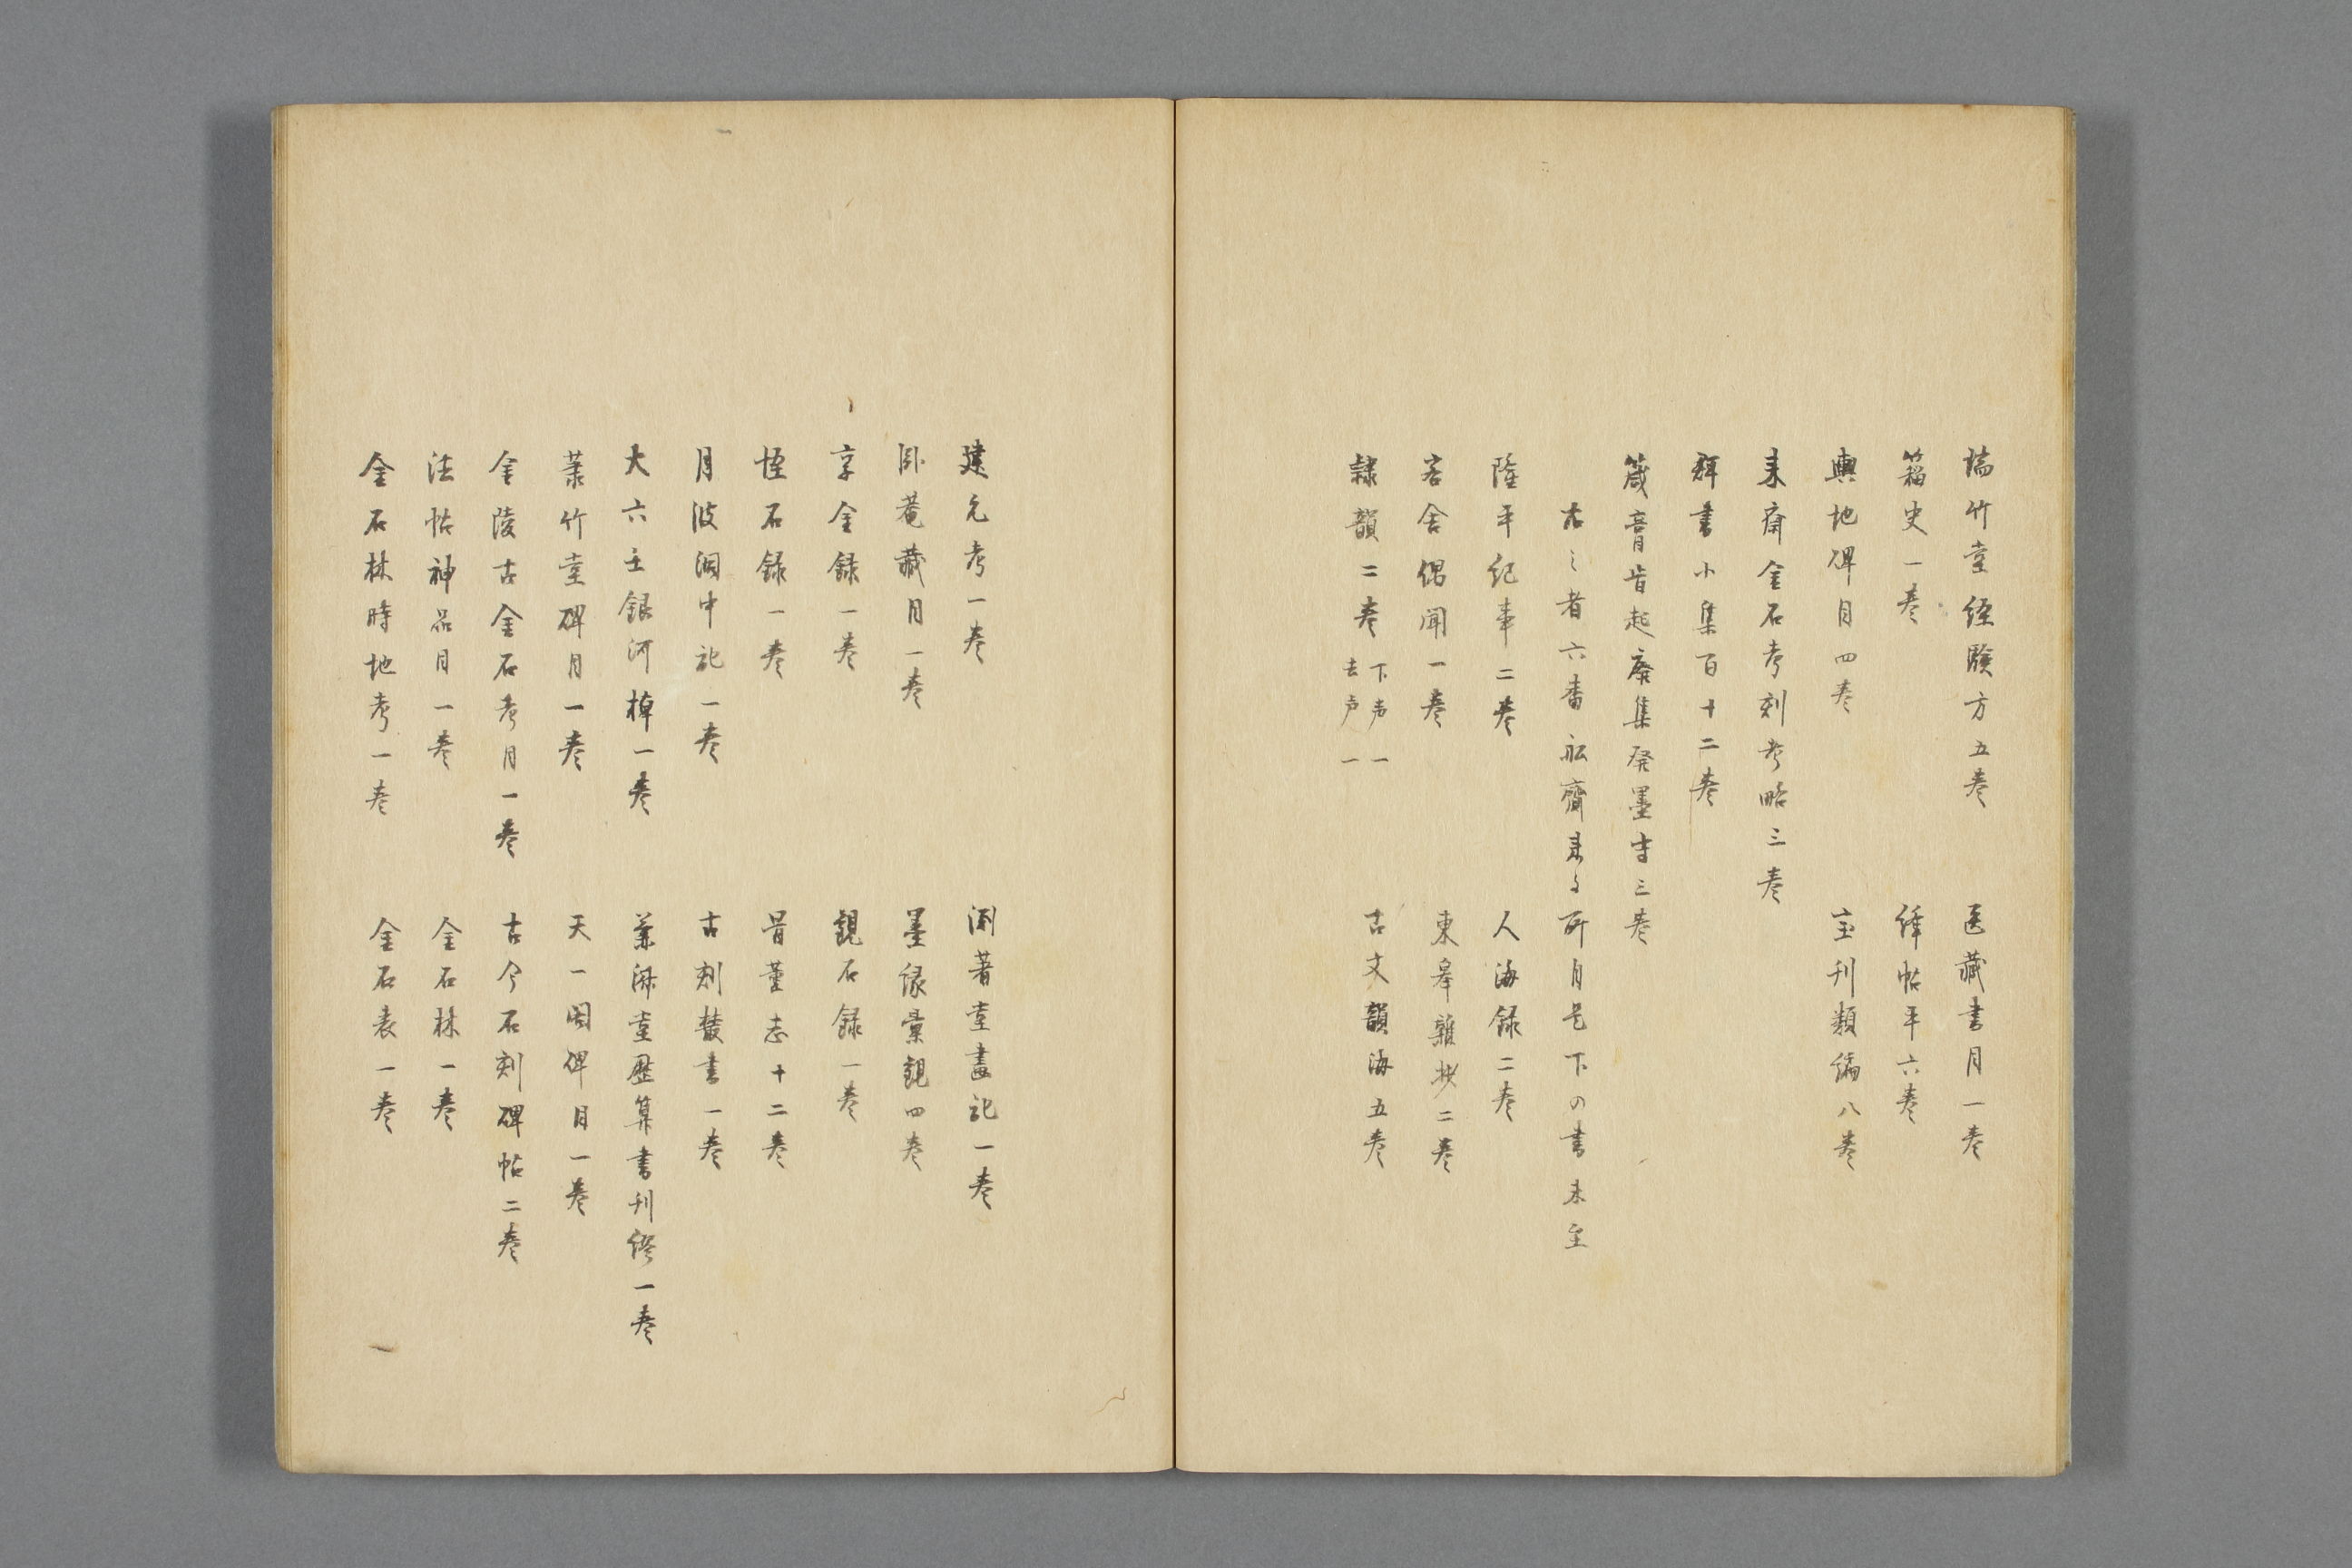 瑞竹堂経験方五巻　医藏書目一巻
籀史一巻　絳帖平六巻
輿地碑目四巻　宝刊類編八巻
来斎金石考刻考略三巻
群書小集百十二巻
箴膏肓起廃集発墨守三巻
右之者六番舩齎来る所目是下の書未至
隆平紀事二巻　人海録二巻
客舎偶聞一巻　東皋雜抄二巻
隷韻二巻 下声一 去声一　古文韻海五巻
建元考一巻　湖著堂畫記一巻
臥菴藏目一巻　墨縁彙観四巻
享金録一巻　観石録一巻
怪石録一巻　骨董志十二巻
月波洞中記一巻　古刻叢書一巻
大六壬銀河棹一巻　業済堂歴算書刊終一巻
菉竹堂碑目一巻　天一閣碑目一巻
金陵古金石考目一巻　古今石刻碑帖二巻
法帖神品目一巻　金石林一巻
金石林時地考一巻　金石表一巻